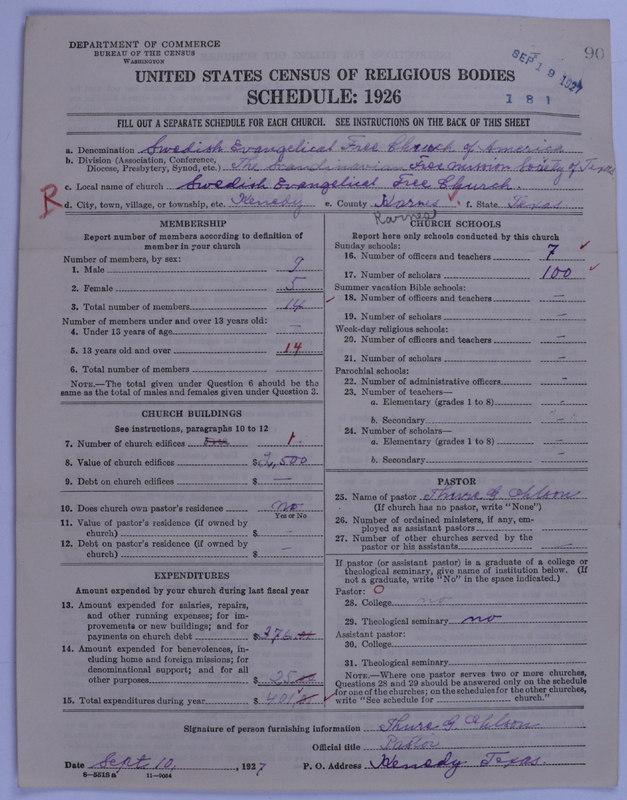 DEPARTMENT OF COMMERCE
BUREAU OF THE CENSUS
WASHINGTON
SEP 19 1927
90
181
UNITED STATES CENSUS OF RELIGIOUS BODIES
SCHEDULE: 1926
FILL OUT A SEPARATE SCHEDULE FOR EACH CHURCH. SEE INSTRUCTIONS ON THE BACK OF THIS SHEET
a. Denomination Swedish Evangelical Free Church of America
b. Division (Association, Conference, Diocese, Presbytery, Synod, etc.) The Scandinavian Free mission Society of Texas
c. Local name of church Swedish Evangelical Free Church.
R
d. City, town, village, or township, etc. Kenedy e. County Karnes f. State Texas
Karnes
MEMBERSHIP
Report number of members according to definition of
member in your church
Number of members, by sex:
1. Male 9
2. Female 5
3. Total number of members 14
Number of members under and over 13 years old:
4. Under 13 years of age —
5. 13 years old and over 14
6. Total number of members
NOTE.—The total given under Question 6 should be
same as the total of males and females given under Question 3.
CHURCH BUILDINGS
See instructions, paragraphs 10 to 12
7. Number of church edifices 1
8. Value of church edifices $2,500
9. Debt on church edifices $ —
10. Does church own pastor's residence no
Yes or No
11. Value of pastor's residence (if owned by
church) $
12. Debt on pastor's residence (if owned by
church) $ —
EXPENDITURES
Amount expended by your church during last fiscal year
13. Amount expended for salaries, repairs,
and other running expenses; for im-
provements or new buildings; and for
payments on church debt $376.
14. Amount expended for benevolences, in-
cluding home and foreign missions; for
denominational support; and for all
other purposes $25
15. Total expenditures during year $401
CHURCH SCHOOLS
Report here only schools conducted by this church
Sunday schools:
16. Number of officers and teachers 7
17. Number of scholars 100
Summer vacation Bible schools:
18. Number of officers and teachers —
19. Number of scholars —
Week-day religious schools:
20. Number of officers and teachers —
21. Number of scholars —
Parochial schools:
22. Number of administrative officers —
23. Number of teachers—
a. Elementary (grades 1 to 8) -
b. Secondary -
24. Number of scholars—
a. Elementary (grades 1 to 8) -
b. Secondary -
PASTOR
25. Name of pastor Thure G Ohlson
(If church has no pastor, write "None")
26. Number of ordained ministers, if any, em-
ployed as assistant pastors
27. Number of other churches served by the
pastor or his assistants —
If pastor (or assistant pastor) is a graduate of a college or
theological seminary, give name of institution below. (If
not a graduate, write "No" in the space indicated.)
Pastor: O
28. College no
29. Theological seminary no
Assistant pastor:
30. College
31. Theological seminary
NOTE.—Where one pastor serves two or more churches,
Questions 28 and 29 should be answered only on the schedule
for one of the churches; on the schedules for the other churches,
write "See schedule for church."
Signature of person furnishing information Thure G Ohlson
Official title Pastor
Date Sept 10, 1927 P. O. Address Kenedy Texas
8-5518 a 11-9684